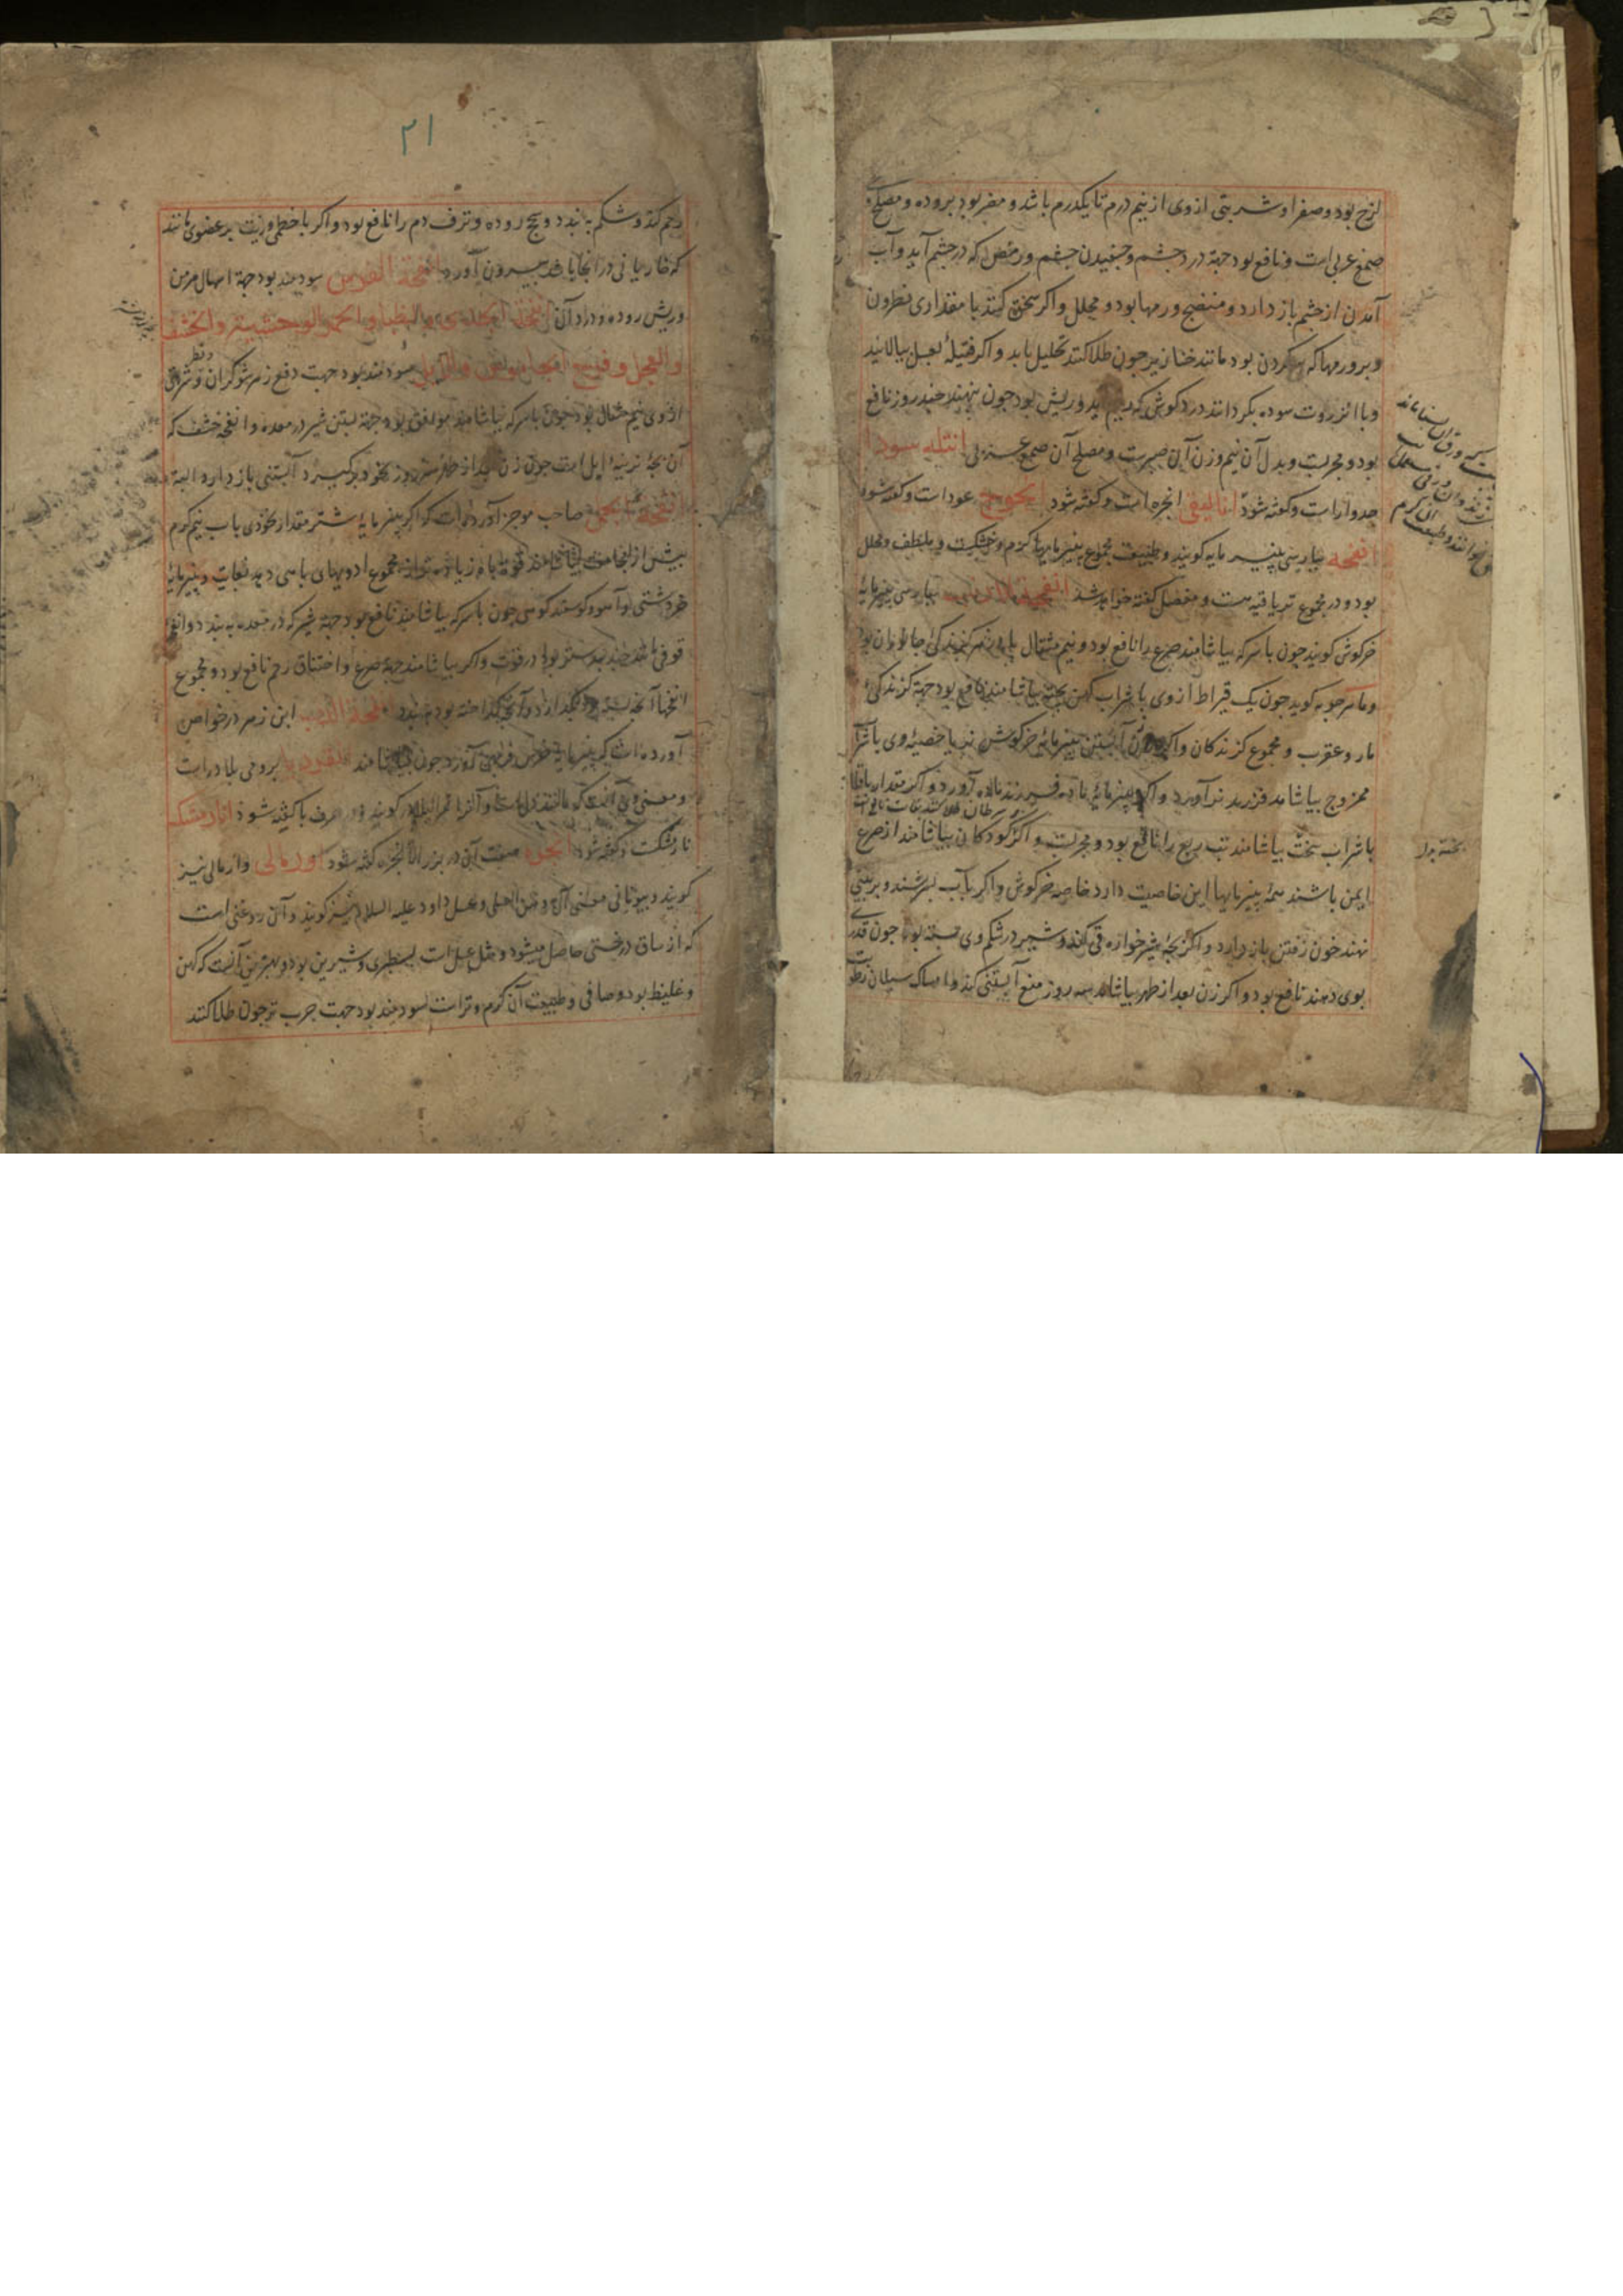 لزج بود و صفرا و شربتی از وی از نیم درم تا یکدرم باشد و مضر بود بروده و مصلح وی
صمغ عربی است و نافع بود جهة درد چشم و چفیدن چشم و رمص که در چشم آید و آب
آمدن از چشم باز دارد و منضج ورمها بود و محلل و اکر سحق کنند با مقداری نطرون
و برورمها که بر کردن بود مانند خنازیر چون طلا کنند تحلیل یابد و اکر فتیلهٔ بعسل بیالایند
و با انزروت سوده بکردانند در کوش که ریم آید و ریش بود چون بنهند چند روز نافع
بود و مجربست و بدل آن نیم وزن آن صبرست و مصلح آن صمغ عربی انتله سودا
جدوارست و کفته شود انالیقی انجره است و کفته شود انجوج عود است و کفته شود
انفحه بپارسی پنیر مایه کویند و طبیعت مجموع پنیر مایها کرم و خشکست و ملطف و محلل
بود و در مجموع تریاقیه هست و مفصل کفته خواهد شد انفحة الارنب بپارسی پنیر مایهٔ
خرکوش کویند چون با سرکه بیاشامند صرع را نافع بود و نیم مثقال پادزهر کزندکی جانوران بود
و ماسرجویه کوید چون یک قیراط از وی با شراب کهن پخته بیاشامند نافع بود جهة کزندکی
مار و عقرب و مجموع کزندکان و اکر زن آبستن پنیر مایهٔ خرکوش نر یا خصیهٔ وی با شراب
ممزوج بیاشامد فرزند نر آورد و اکر پنیر مایهٔ ماده فرزند ماده آورد و اکر مقدار باقلا
با شراب بیاشامند تب ربع را نافع بود و مجربست و اکر کودکان بیاشامند از صرع
بر سرطان طلا کنند بغایت نافع است
ایمن باشند همهٔ پنیر مایها این خاصیت دارد خاصه خرکوش و اکر بآب بسرشند و بر بینی
نهند خون رفتن باز دارد و اکر بچهٔ شیرخواره قی کند و شیر در شکم وی بسته بود چون قدری
بوی دهند نافع بود و اکر زن بعد از طهر بیاشامد سه روز منع آبستنی کند و امساک سیلان رطوبت
پخته بود
۲۱
رحم کند و شکم به بندد و سحج روده و نزف دم را نافع بود و اکر با خطمی و زیت بر عضوی مانند
که خار یا نی در آنجا باشد بیرون آورد انفحة الفرس سودمند بود جهة اسهال مزمن
و ریش روده و درد آن انفحة الجدی و الظبا و الحمر الوحشیة و الخشف
والعجل و سودمند بود جهت دفع زهر شوکران و فطر و شربتی
از وی نیم مثقال بود چون با سرکه بیاشامند موافق بود جهة بستن شیر در معده و انفحهٔ خشف که
آن بچهٔ نرینهٔ ایل است چون زن بعد از طهر سه روز بخود برکیرد آبستنی باز دارد البته
انفحة صاحب موجز آورده است که اکر پنیر مایهٔ شتر مقدار نخودی بآب نیم کرم
پیش از مجامعت بیاشامند قوة باه زیاده تر از مجموع ادویهای باهی دهد بغایت و پنیر مایهٔ
خر دشتی و آهو و کوسفند کوهی چون با سرکه بیاشامند نافع بود جهة شیر که در معده به بندد و انفحهٔ
قوقی مانند جند بیدستر بود در قوت و اکر بیاشامند جهة صرع و اختناق رحم نافع بود و مجموع
انفحها آنچه بسته بود بکدازد و آنچه کداخته بود به بندد انفحة الدب ابن زهر در خواص
آورده است که پنیر مایهٔ خرس فربهی آورد چون بیاشامند برومی بلادرست
و معنی وی آنست که مانند دل است و آنرا ثمرالبلادر کویند و در حرف با کفته شود انارمشک
نارمشکست و کفته شود انجره صفت آن در بزر الانجره کفته شود اورمالی و ارمالی نیز
کویند و بیونانی معنی آن دهن العسلی و عسل داود علیه السلام نیز کویند و آن روغنی است
که از ساق درختی حاصل میشود و مثل عسل است بسطبری و شیرین بود و بهترین آنست که کهن
و غلیظ بود و صافی و طبیعت آن کرم و ترست سودمند بود جهت جرب تر چون طلا کنند